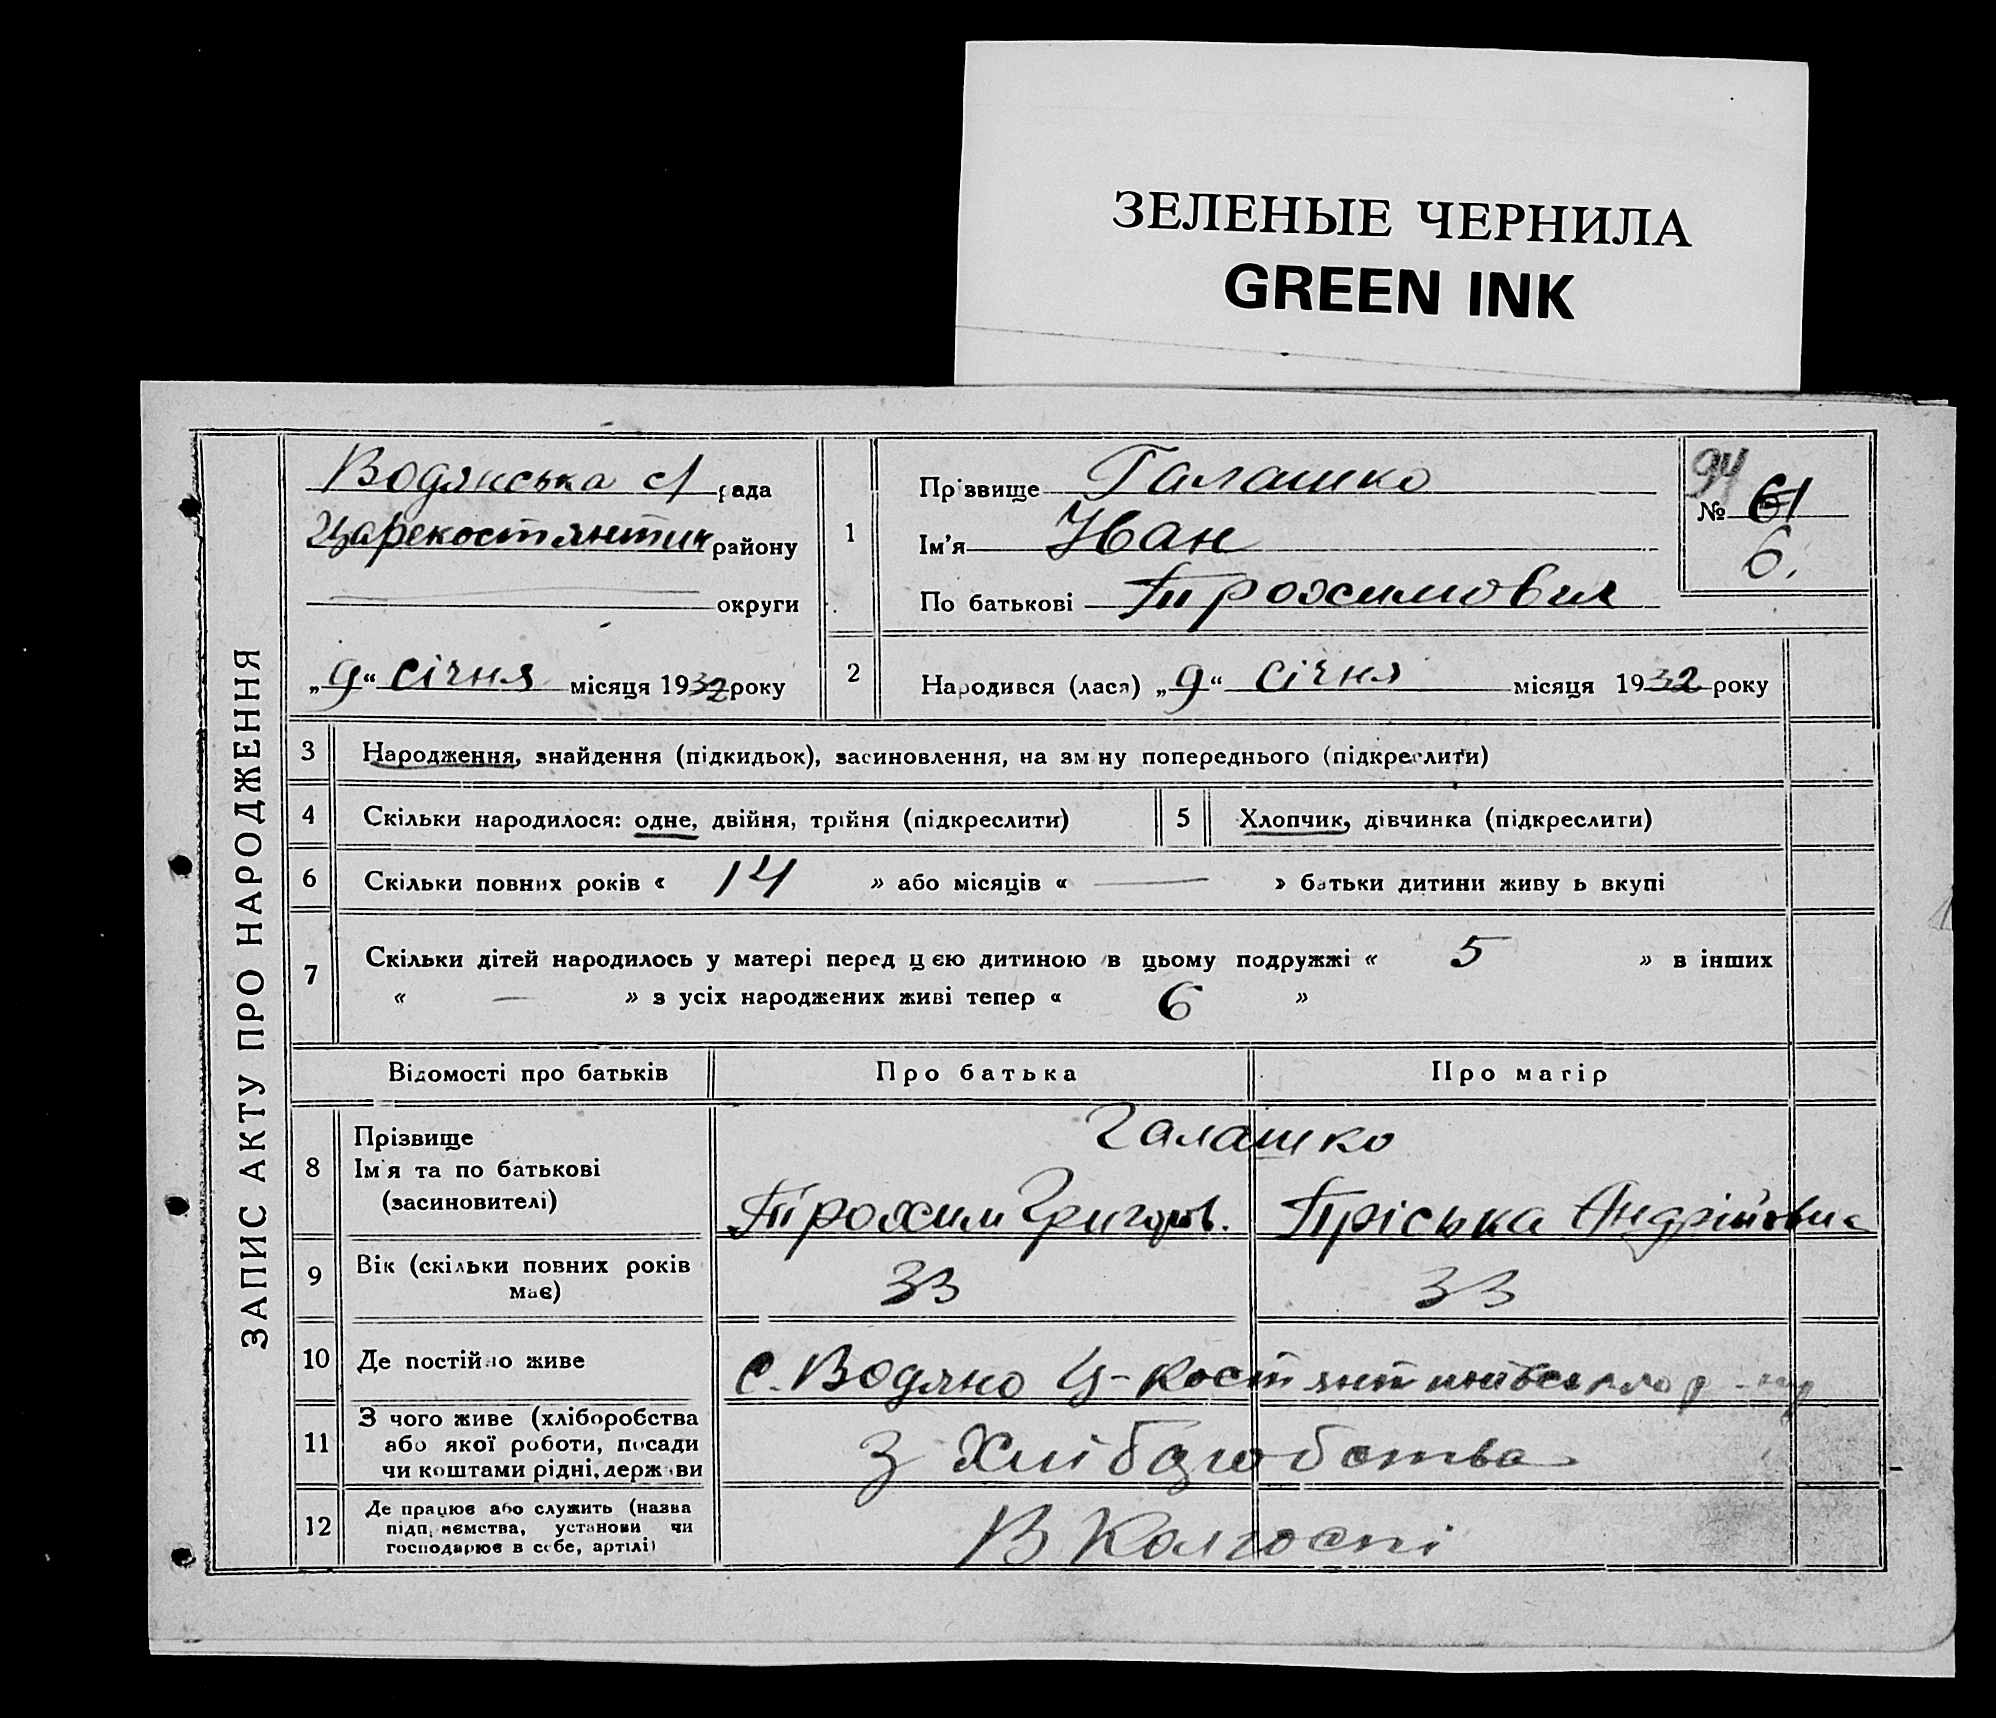 ЗЕЛЕНЫЕ ЧЕРНИЛА
GREEN INK
ЗАПИС АКТУ ПРО НАРОДЖЕННЯ
Водянська с/рада
Царекостянтин району
округи
„9“ січня місяця 1932 року
1
Прізвище Галашко
Ім'я Иван
По батькові Трохимович
94
№ 61
6.
2
Народився (лася) „9“ січня місяця 1932 року
3 Народження, знайдення (підкидьок), засиновлення, на зміну попереднього (підкреслити)
4 Скільки народилося: одне, двійня, трійня (підкреслити)
5 Хлопчик, дівчинка (підкреслити)
6 Скільки повних років « 14 » або місяців « — » батьки дитини живуть вкупі
7 Скільки дітей народилось у матері перед цією дитиною в цьому подружжі « 5 » в інших
« — » з усіх народжених живі тепер « 6 »
Відомості про батьків Про батька Про матір
8 Прізвище
Ім'я та по батькові
(засиновителі)
Галашко
Трохим Григоров. Пріська Андрійовна
9 Вік (скільки повних років
має)
33 33
10 Де постійно живе
с. Водяно Ц-Костянтинівського р-ну
11 З чого живе (хліборобства
або якої роботи, посади
чи коштами рідні, держави
З Хліборобства
12 Де працює або служить (назва
підприємства, установи чи
господарює в себе, артілі)
В Колгоспі